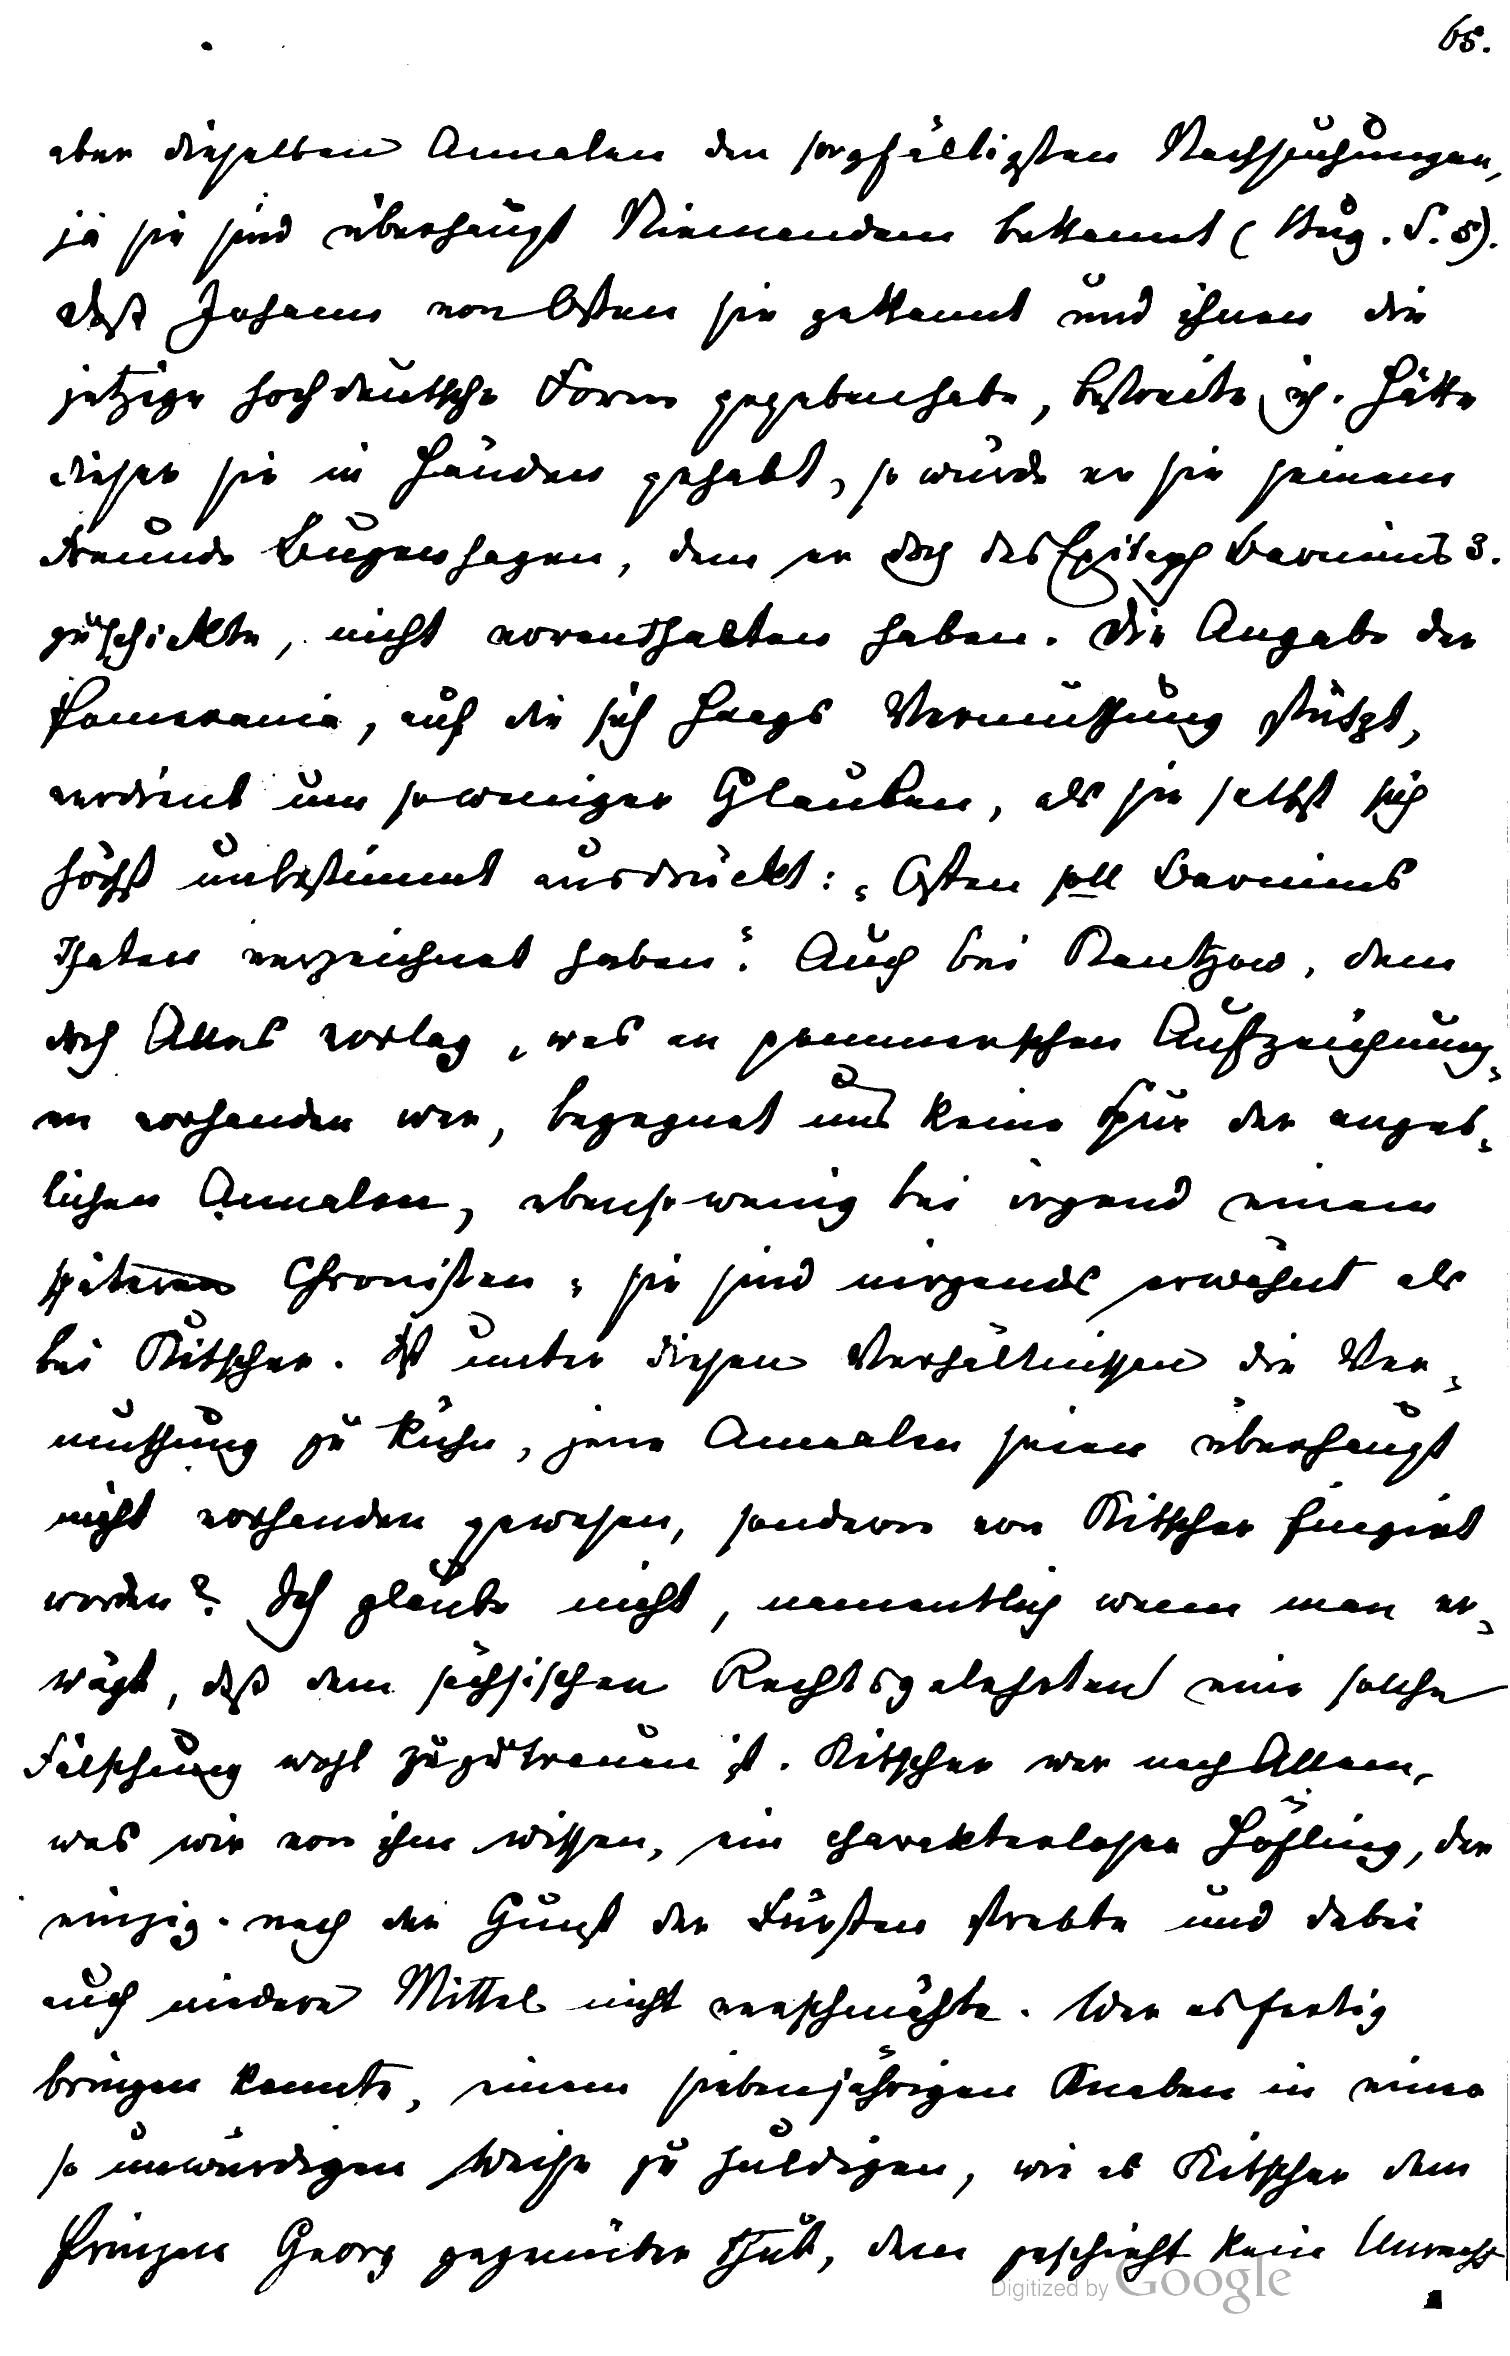 65.
aber dieselben Annalen den sorgfältigsten Nachsuchungen,
ja sie sind überhaupt Niemandem bekannt (Bug. S. 5).
Daß Johann von Osten sie gekannt und ihnen die
jetzige hochdeutsche Form gegeben habe, bestreite ich. Hätte
dieser sie in Händen gehabt, so würde er sie seinem
Freunde Bugenhagen, dem er doch das Epitaph Barnims 3.
zuschickte, nicht vorenthalten haben. Die Angabe der
Pomerania, auf die sich Haags Vermuthung stützt,
verdient um so weniger Glauben, als sie selbst sich
höchst unbestimmt ausdrückt: „Osten soll Barnims
Thaten verzeichnet haben“. Auch bei Kantzow, dem
doch Alles vorlag, was an pommerschen Aufzeichnung-
en vorhanden war, begegnet uns keine Spur der angeb-
lichen Annalen, ebenso wenig bei irgend einem
späteren Chronisten; sie sind nirgends erwähnt als
bei Kitscher. Ist unter diesen Verhältnissen die Ver-
muthung zu kühn, jene Annalen seien überhaupt
nicht vorhanden gewesen, sondern von Kitscher fingirt
worden? Ich glaube nicht, namentlich wenn man er-
wägt, daß dem sächsischen Rechtsgelehrten eine solche
Fälschung wohl zuzutrauen ist. Kitscher war nach Allem,
was wir von ihm wissen, ein charakterloser Höfling, der
einzig nach der Gunst der Fürsten strebte und dabei
auch niedere Mittel nicht verschmähte. Wer es fertig
bringen konnte, einem siebenjährigen Knaben in einer
so unwürdigen Weise zu huldigen, wie es Kitscher dem
Prinzen Georg gegenüber thut, dem geschieht kein Unrecht
Digitized by Google